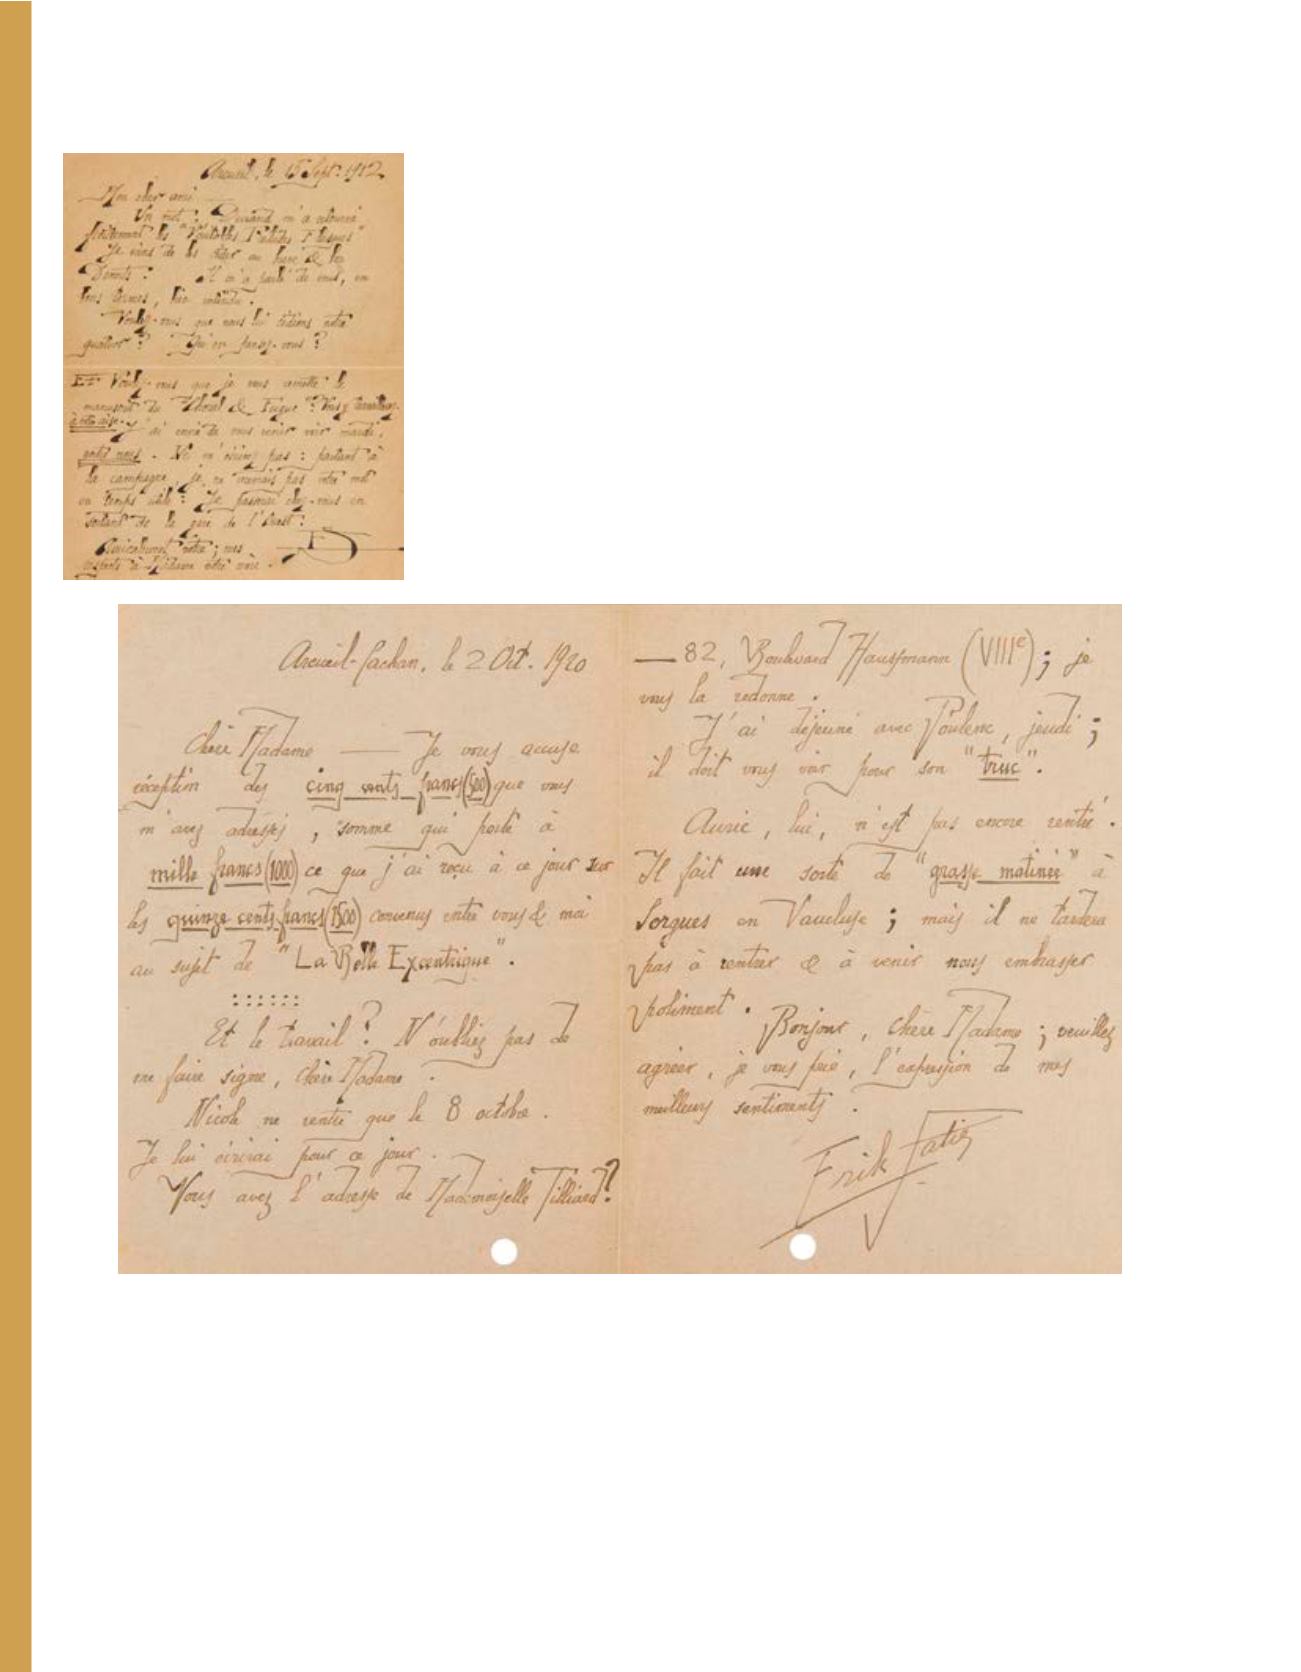 Arcueil, le 15 Sept. 1912
Mon cher ami
Un mot : Durand m'a retourné
les "Véritables Préludes Flasques"
Je viens de les céder au
Demets : Il m'a parlé de vous, en
bons termes, bien entendu.
Voulez-vous que nous lui cédions notre
quatuor ? Qu'en pensez-vous ?
Et Voulez-vous que je vous remette le
manuscrit du "Choral & Fugue" ? Vous y travailleriez
à votre aise. J'ai envie de vous venir voir mardi,
. Ne m'écrivez pas : partant à
la campagne, je ne recevrais pas votre mot
en temps utile : Je passerai chez-vous en
sortant de la gare de l'Ouest :
Amicalement votre ; mes
respects à Madame votre mère.
ES
Arcueil-Cachan, le 2 Oct. 1920
Chère Madame — Je vous accuse
réception des cinq cents francs (500) que vous
m'avez adressés, somme qui porte à
mille francs (1000) ce que j'ai reçu à ce jour sur
les quinze cents francs (1500) convenus entre vous & moi
au sujet de "La Belle Excentrique".
::::::
Et le travail ? N'oubliez pas de
me faire signe, chère Madame.
Nicole ne rentre que le 8 octobre.
Je lui écrirai pour ce jour.
Vous avez l'adresse de Mademoiselle Tilliard ?
— 82, Boulevard Haussmann (VIIIe) ; je
vous la redonne.
J'ai déjeuné avec Poulenc, jeudi ;
il doit vous voir pour son "truc".
Auric, lui, n'est pas encore rentré.
Il fait une sorte de "grasse matinée" à
Sorgues en Vaucluse ; mais il ne tardera
pas à rentrer & à venir nous embrasser
poliment.
Bonjour, chère Madame ; veuillez
agréer, je vous prie, l'expression de mes
meilleurs sentiments.
Erik Satie